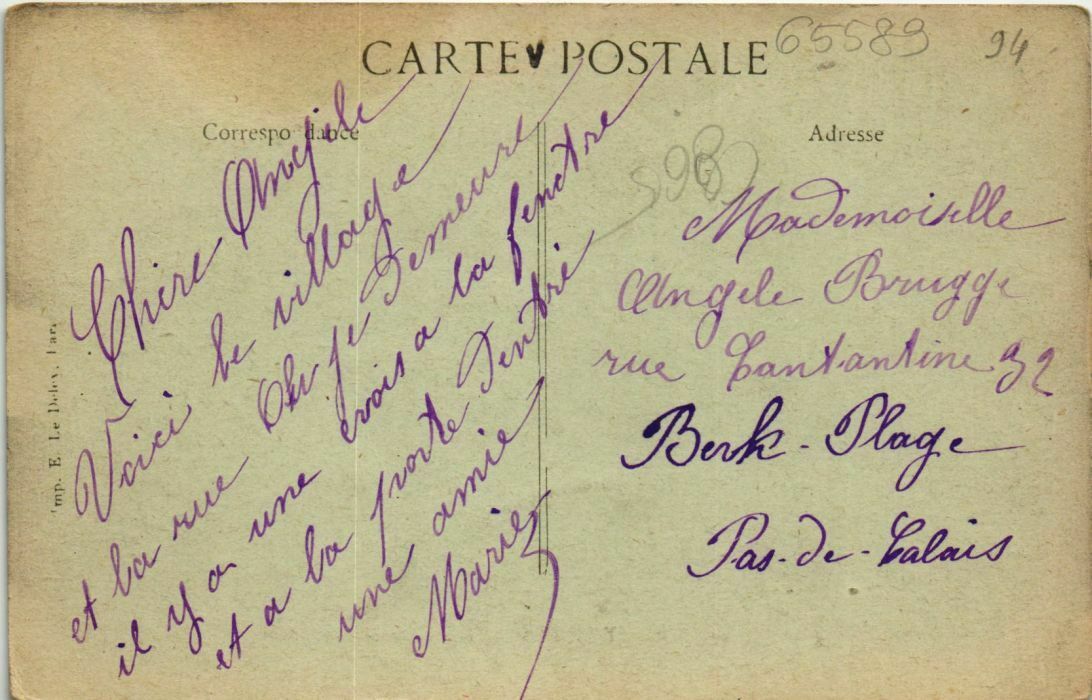 CARTE POSTALE
65589
94
Correspo dance
Adresse
Chère Angèle
Voici le village
et la rue Ou je Demeure
il y a une crois a la fenetre
et a la porte Dentré
une amie
Marie
Mademoiselle
Angele Brugge
rue Cantantine 32
Berk-Plage
Pas-de-Calais
Imp. E. Le Deley, Paris